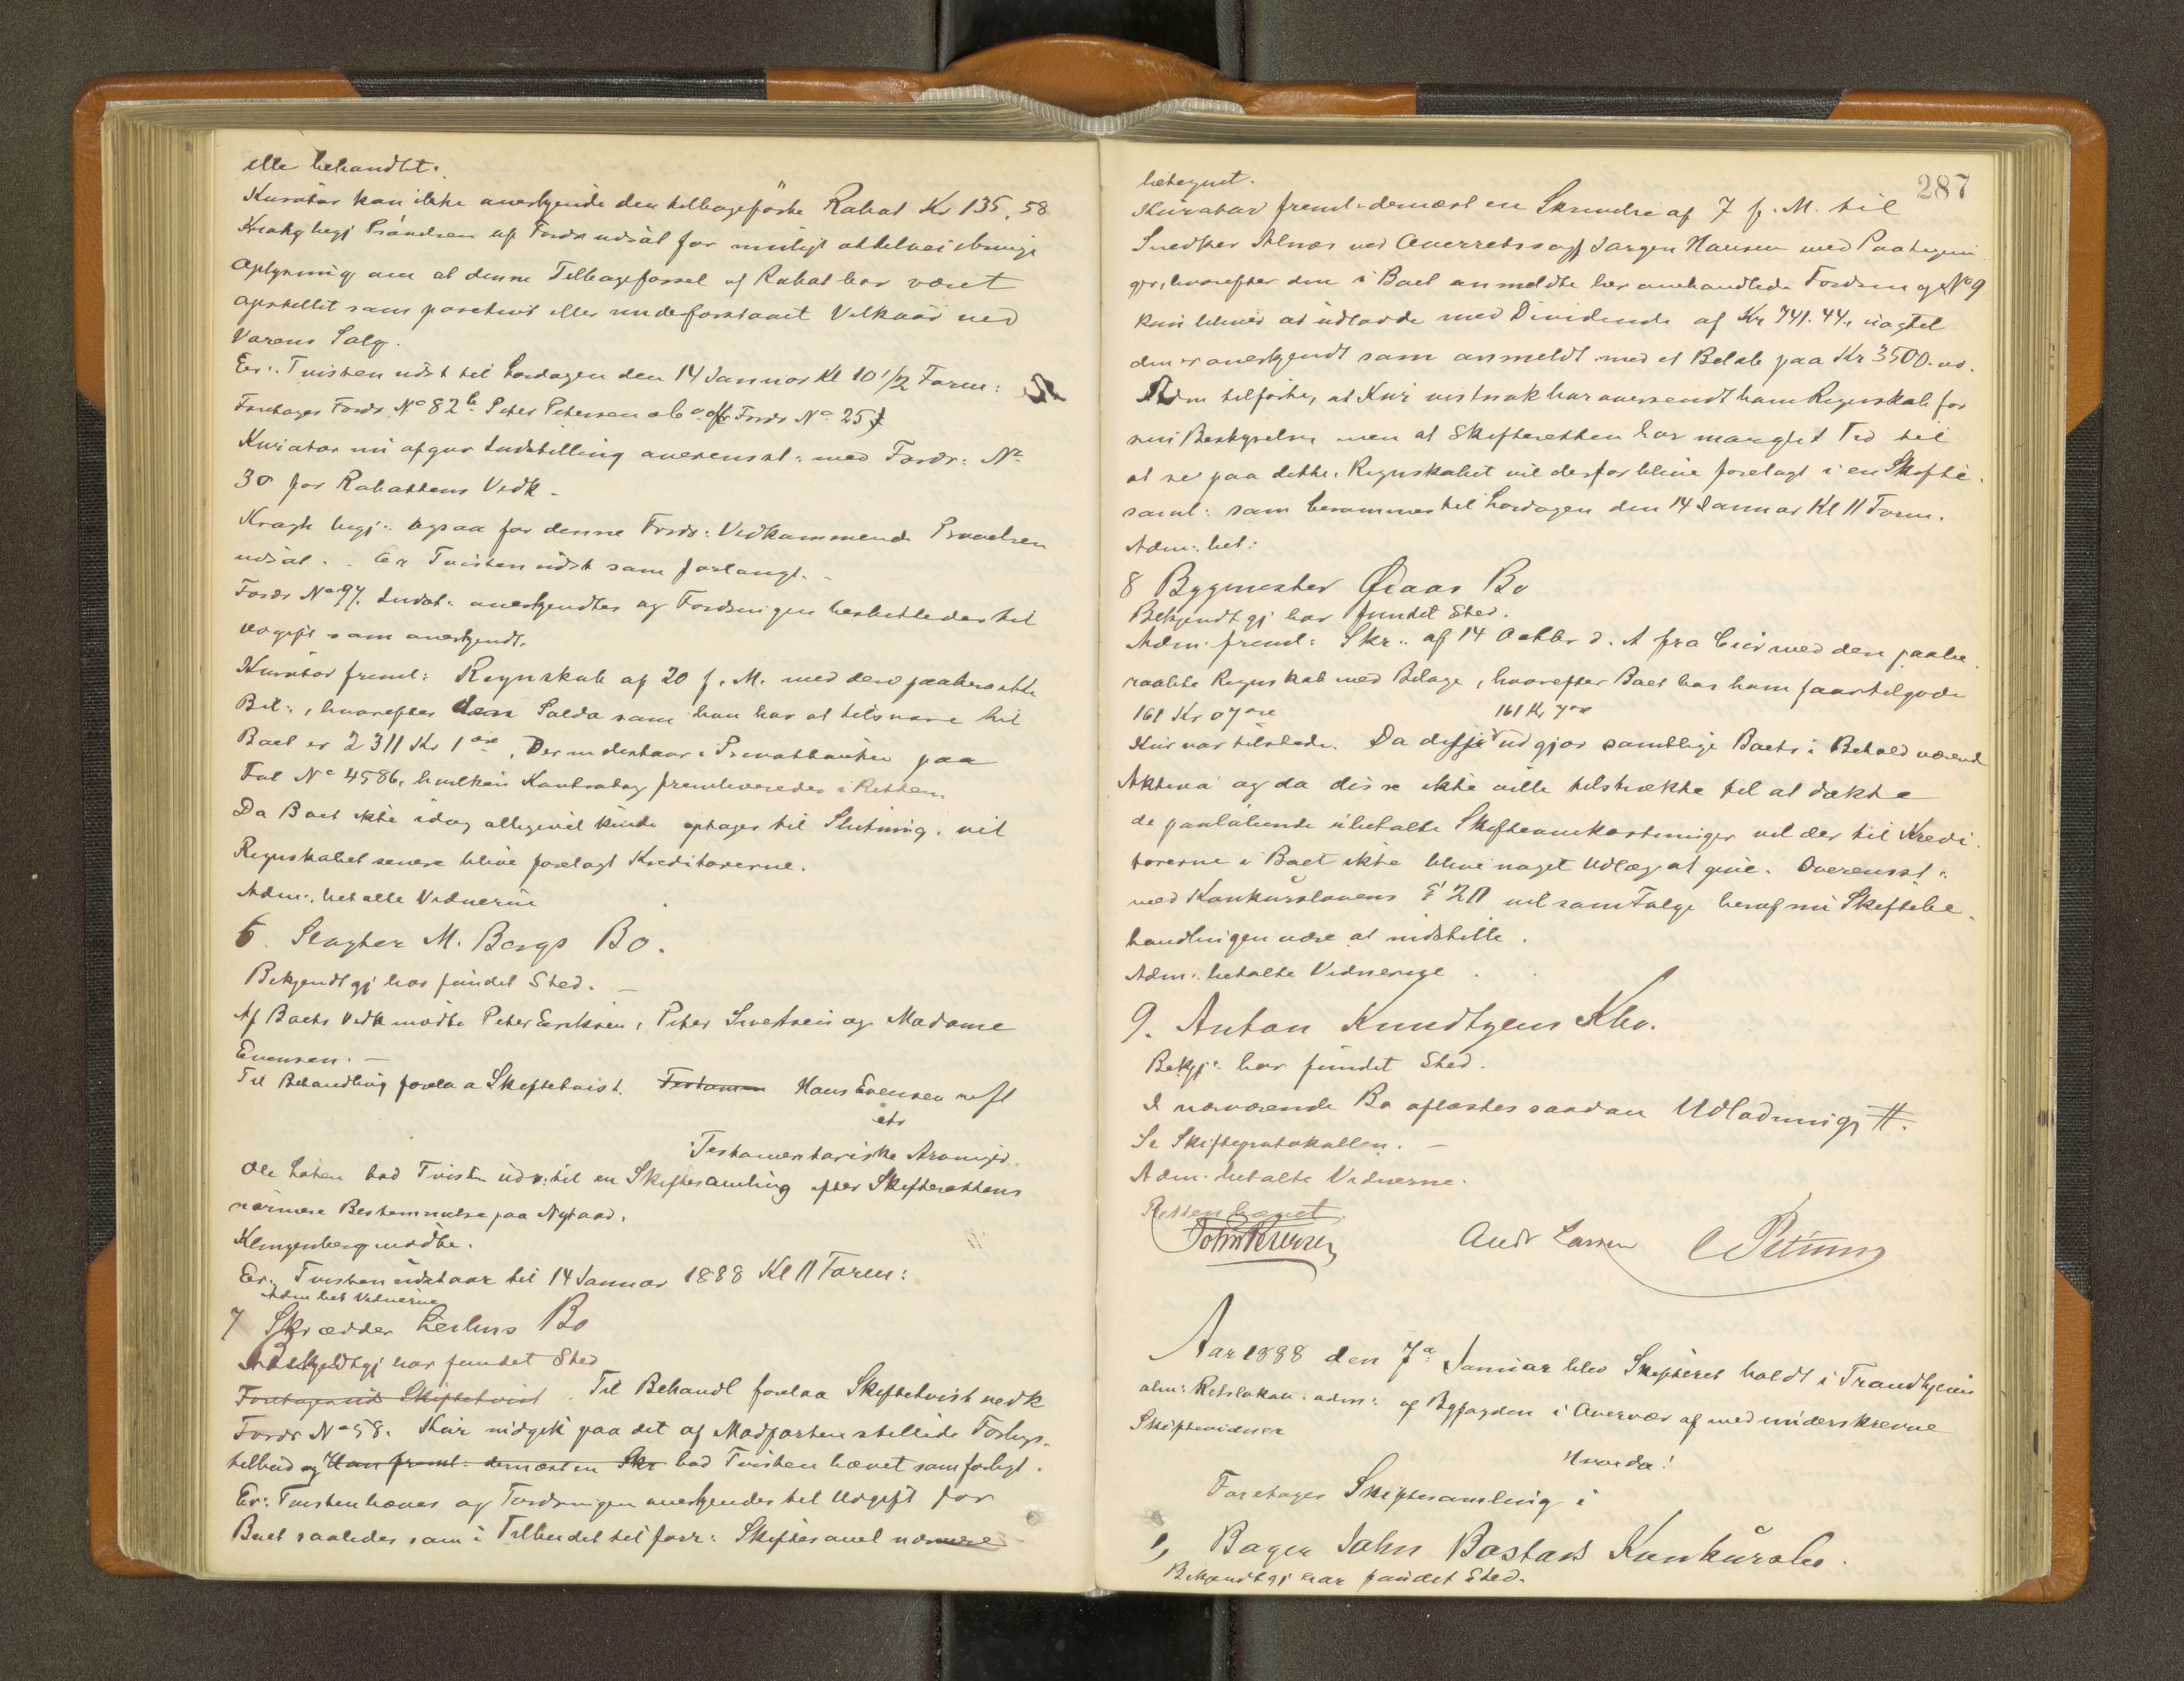 elle behandlet.
Kurator kan ikke anerkjende den tilbageförte Rabat Kr 135,58
Kragh begj Prövelsen af Fordr udsat for muligt at tilveiebringe
Oplysning om at denne Tilbageførsel af Rabat har været
opstillet som positivt eller underforstaaet Vilkaar ved
Varens Salg.
Er: Tvisten udst til Lørdagen den 14 Januar Kl 10 1/2 Form:
Foretages Fordr. No 82 b. Peter Petersen & Co Fordr No 25
Kurator nu afgav Indstilling overensst: med Fordr: No
30 for Rabattens Vedk.
Kragh begj: ogsaa for denne Fordr: Vedkommende Prøvelsen
udsat. Er Tvisten udst som forlangt.
Fordr No 97. Indst: anerkjendtes og Fordringen besluttedes til
Udgift som anerkjendt.
Kurator freml: Regnskab af 20 f. M. med den paaberaabte
Bil:, hvorefter den Saldo som han har at tilsvare til
Boet er 2311 Kr 1 øre. Der indestaar i Privatbanken paa
Fol No 4586, hvilken Kontrabog fremlevered​es i Retten.
Da Boet ikke idag alligevel kunde optages til Slutning, vil
Regnskabet senere blive forelagt Kreditorerne.
Adm: bet alle Vidnerne
6. Slagter M. Bergs Bo.
Bekjendtgj har fundet Sted.
Af Boets Vedk mødte Peter Eriksen, Peter Sivertsen og Madame
Evensen.
Til Behandling forelaa Skiftetvist. Testamen Hans Evensen
etr
Testamentariske
Ole Loten bad Tvisten uds: til en Skiftesamling efter Skifterettens
nærmere Bestemmelse paa Nytaar.
Klingenberg mødte.
Er: Tvisten udstaar til 14 Januar 1888 Kl 11 Form:
Adm bet Vidnerne
7 Skrædder Bo
Bekjendtgj har fundet Sted
Foretages ud Skiftetvist. Til Behandl forelaa Skiftetvist vedk
Fordr No 58. Kur indgik paa det af Modparten stillede Forligs-
tilbud og Han freml: dernæst en Skr bad Tvisten hævet som forligt.
Er: Tvisten hæves og Fordringen anerkjendes til Udgift for
Boet saaledes som i Tilbudet tilførr: Skiftesaml nærmere
287
betegnet.
Kurator freml: dernæst en Skrivelse af 7 f. M. til
Snedker Alnæs ved Overretssagf Jørgen Hansen med Paategnin
ger, hvorefter den i Boet anmeldte her omhandlede Fordring No 9
kun bliver at udlodde med Dividende af Kr 741.44, uagtet
den er anerkjendt som anmeldt med et Beløb paa Kr 3500.
Adm tilførte, at Kur vistnok har oversendt ham Regnskab for
sin Bestyrelse men at Skifteretten har manglet Tid til
at se paa dette. Regnskabet vil derfor blive forelagt i en Skifte-
saml: som berammes til Lørdagen den 14 Januar Kl 11 Form.
Adm: bet:
8 Bygmester Øiaas Bo
Bekjendtgj har fundet Sted.
Adm: freml: Skr: af 14 Octbr d. A fra Cur med den paabe-
raabte Regnskab med Bilage, hvorefter Boet har ham faar tilgode
161 Kr 07 øre 161 Kr 7 øre
Kur var tilstede. Da disse udgjør samtlige Boets i Behold værende
Aktiva og da disse ikke ville tilstrække til at dække
de paaløbende ubetalte Skifteomkostninger vil der til Kredi
torerne i Boet ikke blive noget Udlæg at give. Overensst:
med Konkurslovens § 20 vil som Følge heraf nu Skiftebe-
handlingen være at indstille.
Adm: betalte Vidnerne.
9. Anton Knudtzens Kbo.
Bekj: har fundet Sted.
I nærværende Bo aflæstes saadan Udlodning #.
Se Skifteprotokollen.
Adm. betalte Vidnerne.
Retten hævet.
Andr Larsen
Aar 1888 den 7de Januar blev Skifteret holdt i Trondhjems
alm: Retslokale: adm: af Byfogden i Overvær af med underskrevne
Skiftevidner
Hvorda!
Foretages Skiftesamling i
1, Bager John Bostads Konkursbo.
Bekjendtgj har fundet Sted.